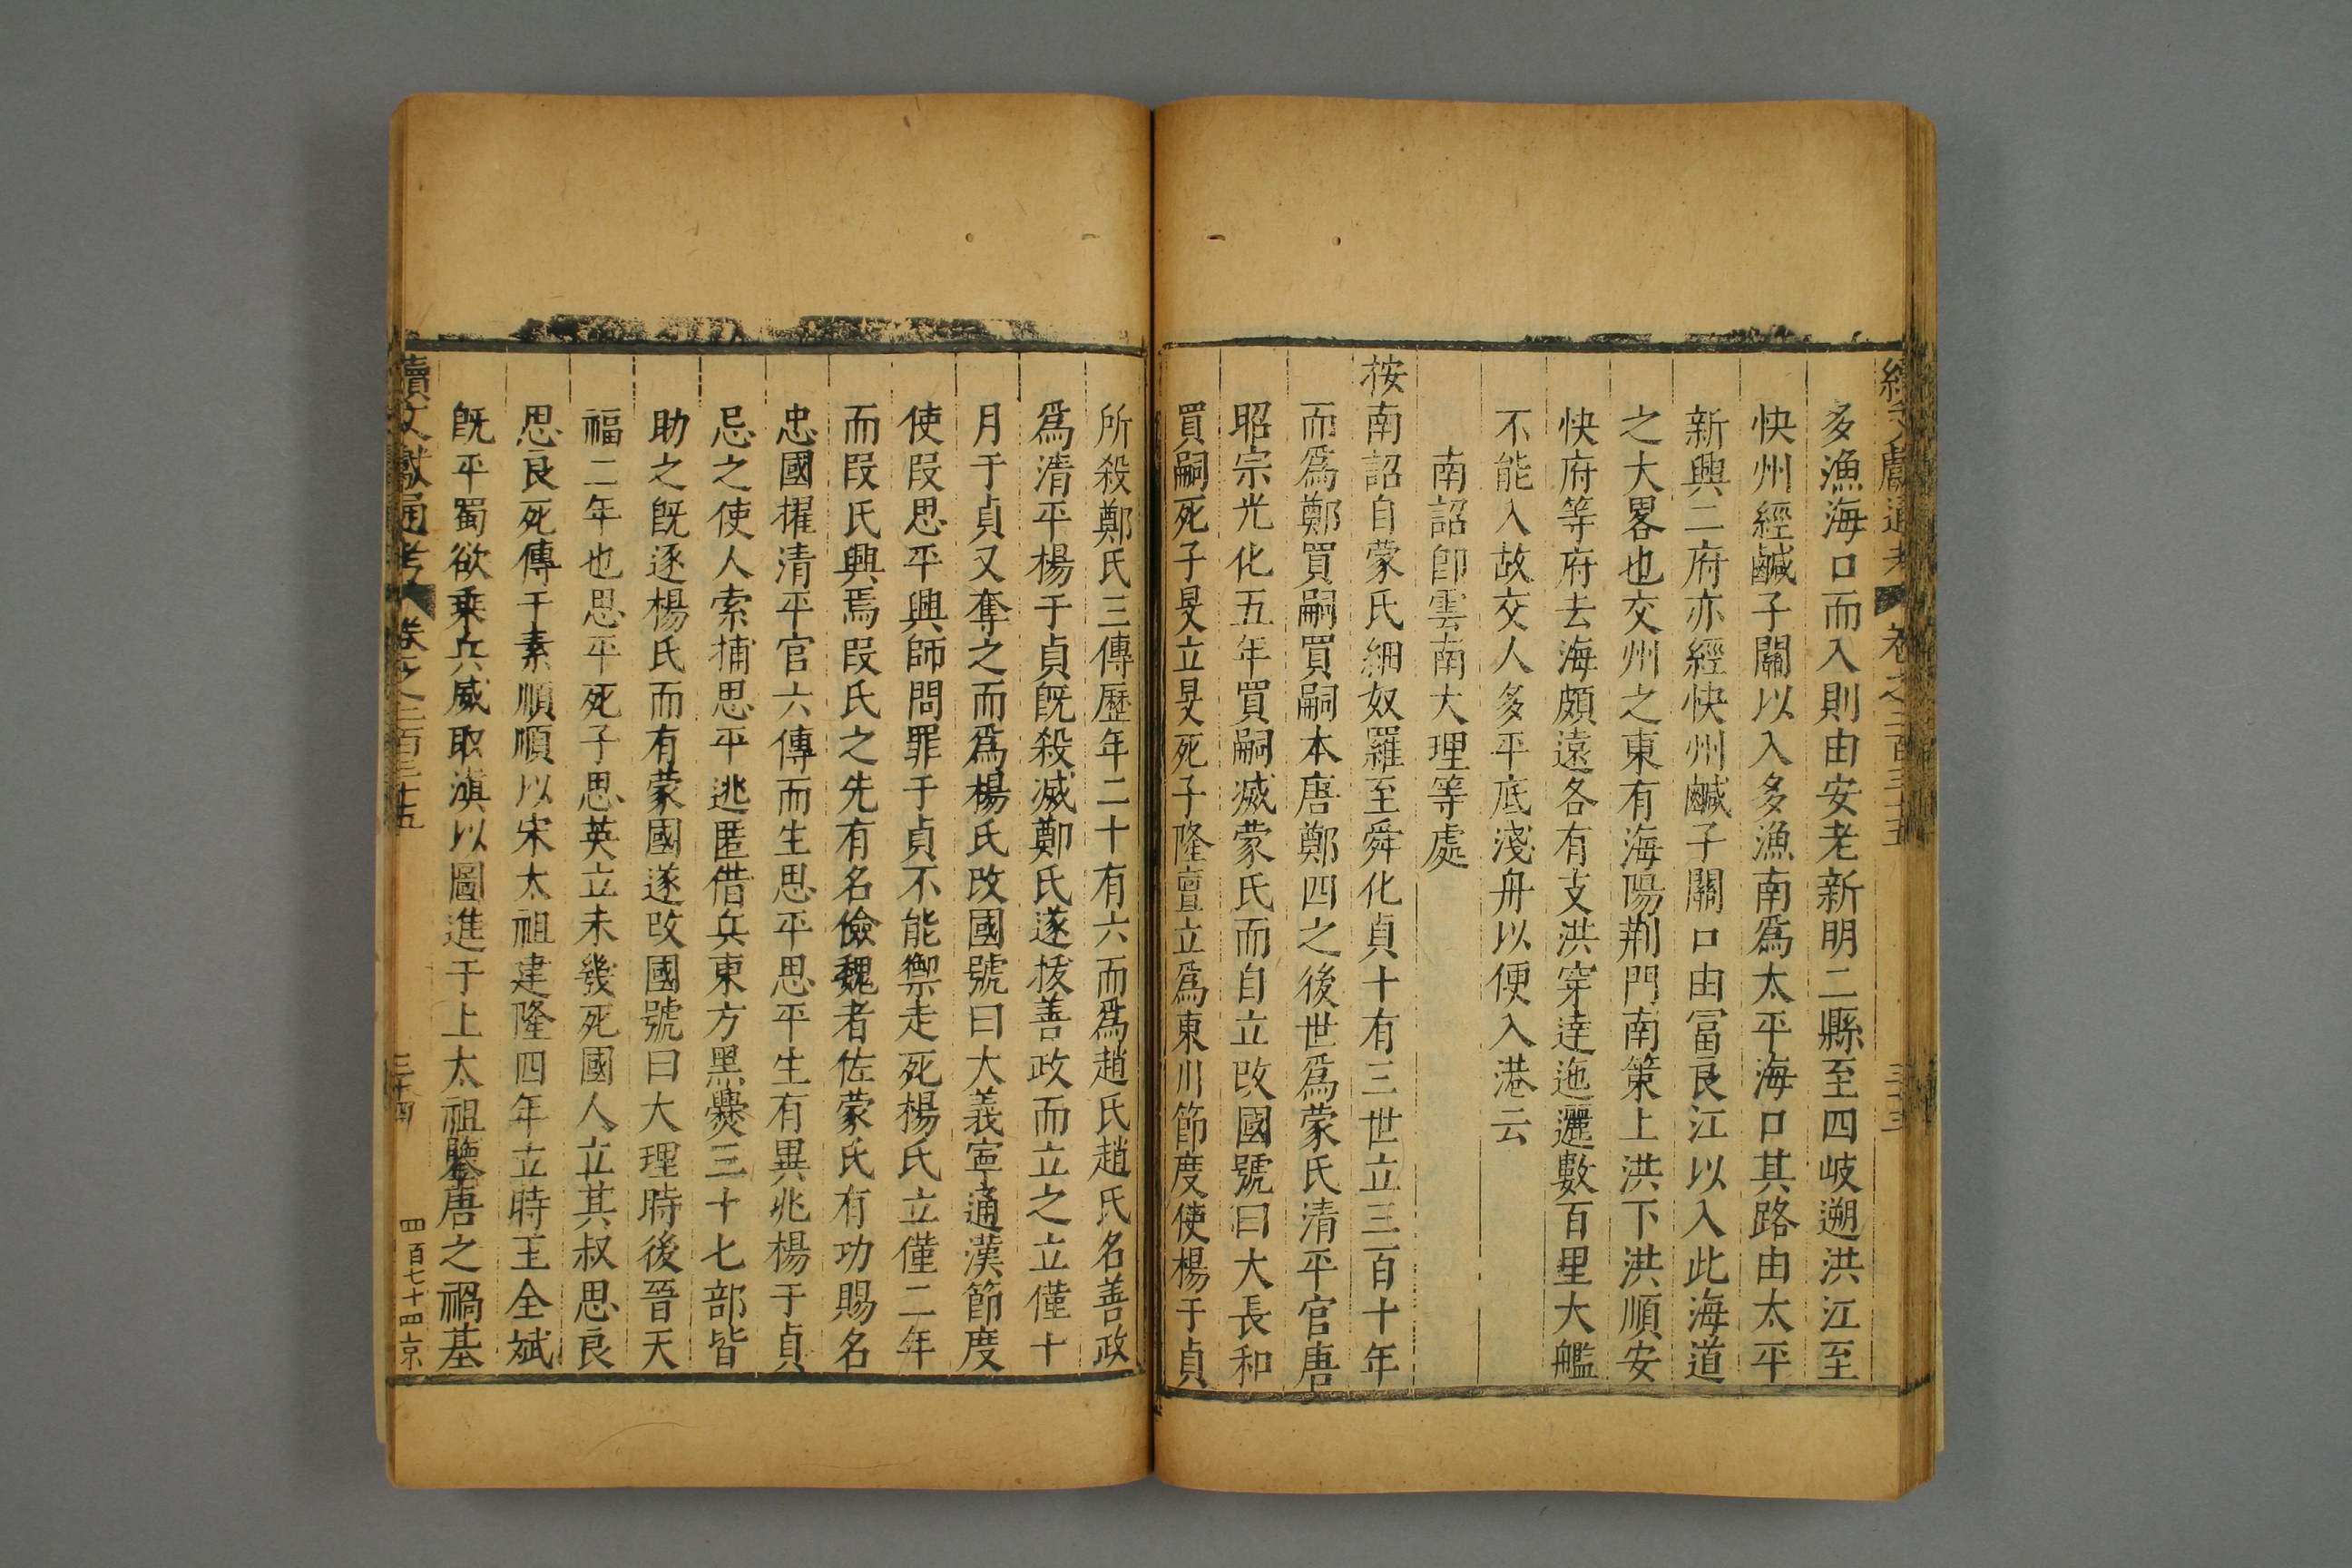 續文獻通考 卷之二百三十五 三十三
多漁海口而入則由安老新明二縣至四岐遡洪江至
快州經鹹子關以入多漁南爲太平海口其路由太平
新興二府亦經快州鹹子關口由冨良江以入此海道
之大畧也交州之東有海陽荆門南策上洪下洪順安
快府等府去海頗遠各有支洪穿達迤邐數百里大艦
不能入故交人多平底淺舟以便入港云
南詔卽雲南大理等處
按南詔自蒙氏細奴羅至舜化貞十有三世立三百十年
而爲鄭買嗣買嗣本唐鄭四之後世爲蒙氏清平官唐
昭宗光化五年買嗣滅蒙氏而自立改國號曰大長和
買嗣死子旻立旻死子隆亶立爲東川節度使楊于貞
所殺鄭氏三傳歷年二十有六而爲趙氏趙氏名善政
爲清平楊于貞旣殺滅鄭氏遂拔善政而立之立僅十
月于貞又奪之而爲楊氏改國號曰大義寧通漢節度
使段思平興師問罪于貞不能禦走死楊氏立僅二年
而段氏興焉段氏之先有名儉魏者佐蒙氏有功賜名
忠國擢清平官六傳而生思平思平生有異兆楊于貞
忌之使人索捕思平逃匿借兵東方黑爨三十七部皆
助之旣逐楊氏而有蒙國遂改國號曰大理時後晉天
福二年也思平死子思英立未幾死國人立其叔思良
思良死傳于素順順以宋太祖建隆四年立時王全斌
旣平蜀欲乘兵威取滇以圖進于上太祖鑒唐之禍基
續文獻通考 卷之二百三十五 三十四 四百七十四京